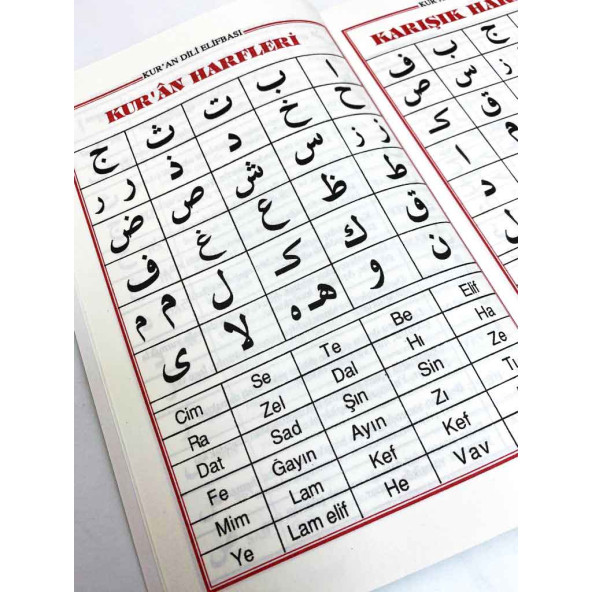 KUR'AN DİLİ ELİFBASI
KUR'ÂN HARFLERİ
ا ب ت ث ج
ح خ د ذ ر ر
ز ز س ش ص ض
ط ظ ع غ ف
ق ك ک ل م م
ن و ه ه لا ى
Cim Se Te Be Elif
Ra Zel Dal Hı Ha
Dat Sad Şın Sin Ze
Fe Ğayın Ayın Zı
Mim Lam Kef Kef
Ye Lam elif He Vav
KARIŞIK
ج ب ف
ز س ص
ق ک
م ا
د
ل